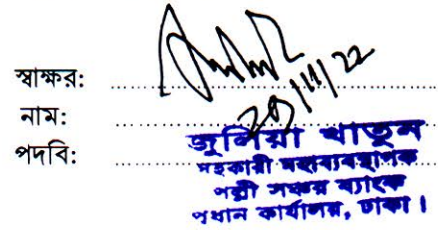 স্বাক্ষর:
২০/11/22
নাম:
পদবি:
জুলিয়া খাতুন
সহকারী মহাব্যবস্থাপক
পল্লী সঞ্চয় ব্যাংক
প্রধান কার্যালয়, ঢাকা।